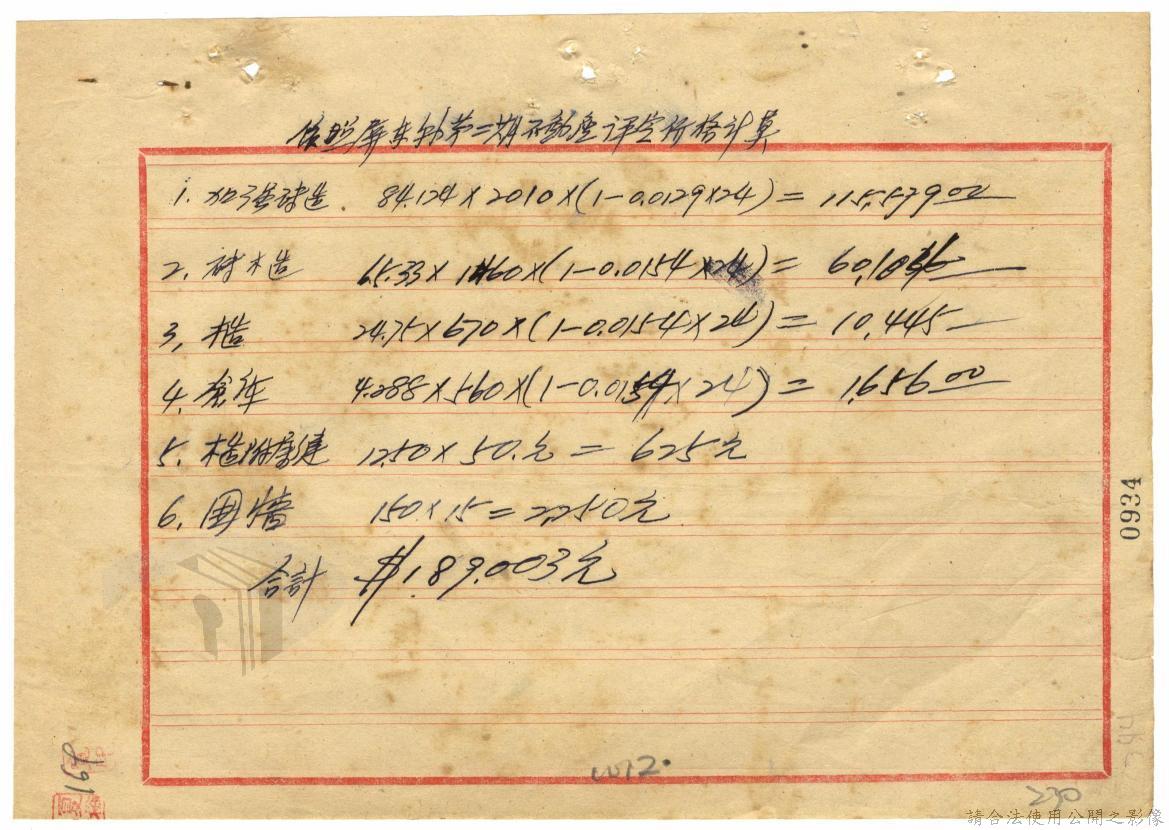 依照屏東縣第二期不動產評定价格計算
1. 加强磚造 84.124×2010×(1-0.0129×24)= 115,579.00
2. 磚木造 65.33×1460×(1-0.0154×24)= 60,136
3. 木造 24.75×670×(1-0.0154×24)= 10,445
4. 倉庫 4.288×560×(1-0.0154×24)= 1,656.00
5. 木造附屬建 12.50×50.元= 625元
6. 囲墻 150×15=2,250元
合計 $189,003元
0934
167
230
請合法使用公開之影像